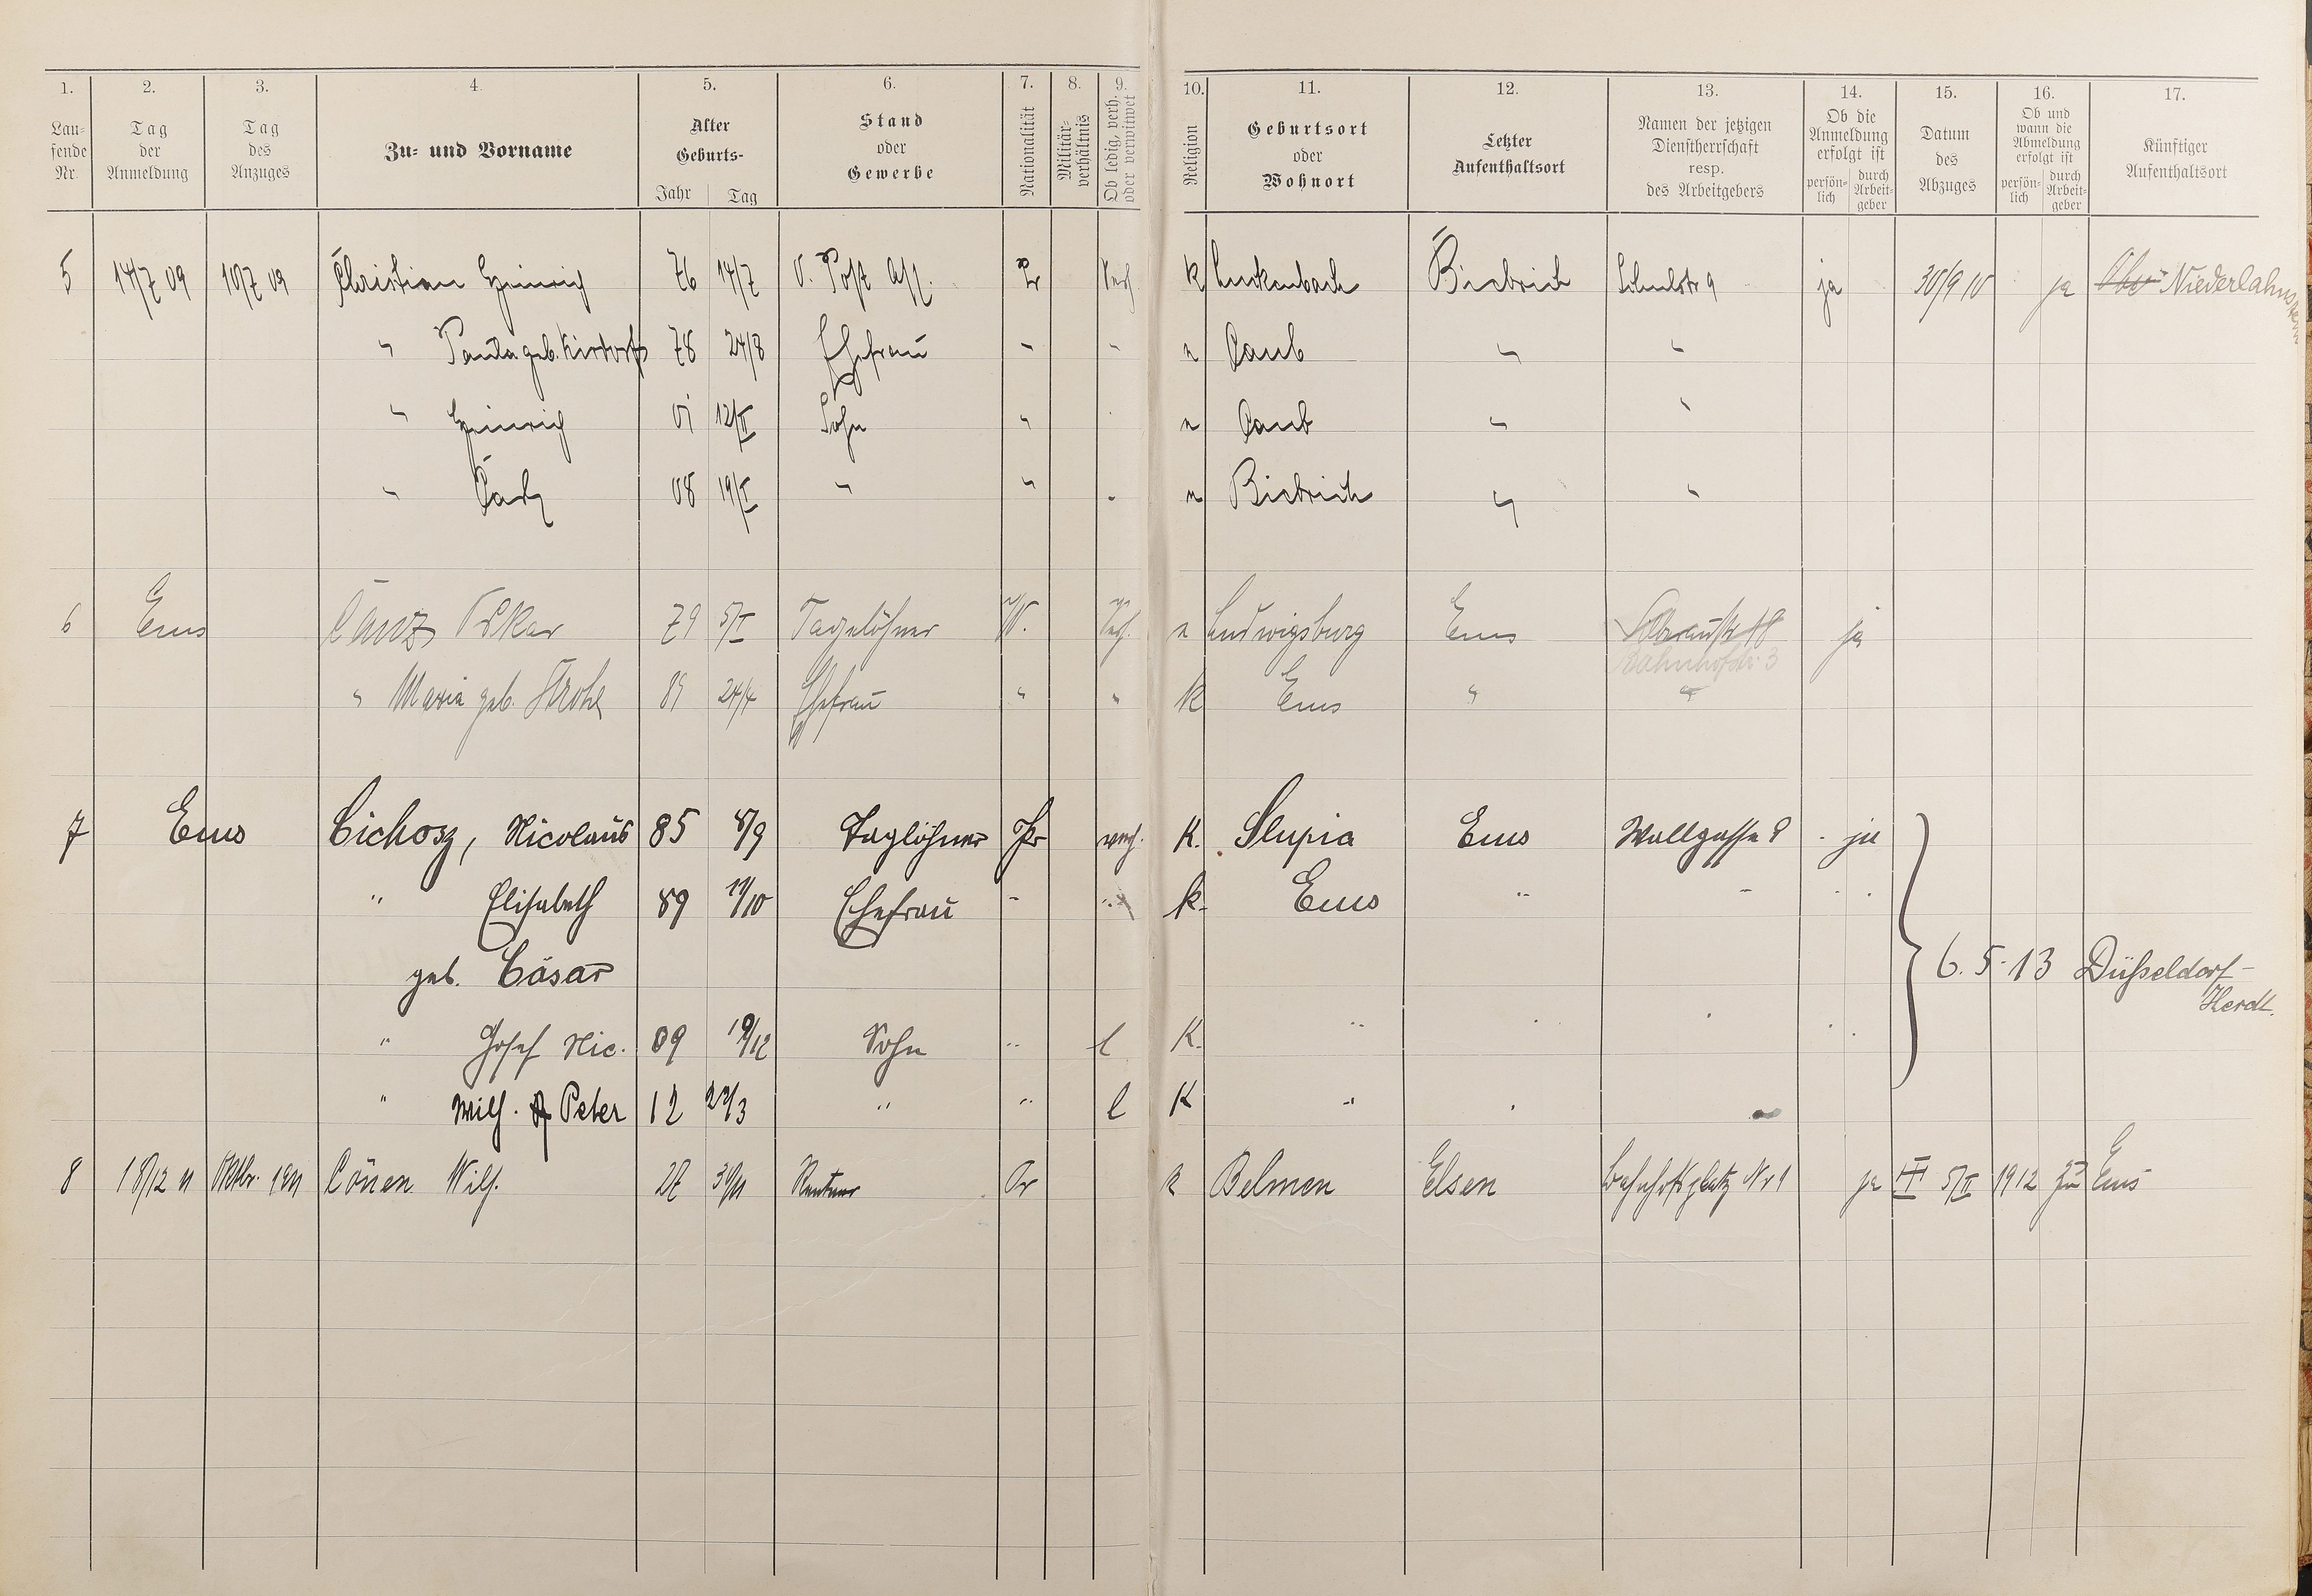 1. 2. 3. 4. 5. 6. 7. 8. 9. 10. 11. 12. 13. 14. 15. 16. 17.
Lau-
fende
Nr.
Tag
der
Anmeldung
Tag
des
Anzuges
Zu- und Vorname
Alter
Geburts-
Jahr Tag
Stand
oder
Gewerbe
Nationalität
Militär-
verhältnis
Ob ledig, verh.
oder verwitwet
Religion
Geburtsort
oder
Wohnort
Letzter
Aufenthaltsort
Namen der jetzigen
Dienstherrschaft
resp.
des Arbeitgebers
Ob die
Anmeldung
erfolgt ist
persön-
lich
durch
Arbeit-
geber
Datum
des
Abzuges
Ob und
wann die
Abmeldung
erfolgt ist
persön-
lich
durch
Arbeit-
geber
Künftiger
Aufenthaltsort
5 14/7 09 10/7 09 Christian Heinrich 76 14/7 O. Post Ass. Pr Verh. K Luckenbach Biebrich Schulstr 9 ja 30/9 10 ja Niederlahnstein
" Paula geb. Kirdorf 78 24/8 Ehefrau " " " Caub " "
" Heinrich 12/II Sohn " " Caub " "
" Carl 08 19/I " " " " Biebrich " "
6 Ems Canz Oskar 79 5/I Tagelöhner W. Verh. " Ludwigsburg Ems ja
Bahnhofstr. 3
" Maria geb. Strohe 89 24/4 Ehefrau " " K Ems " "
7 Ems Cichosz, Nicolaus 85 8/9 Taglöhner Pr verh. K. Slupia Ems Wallgasse 8 ja
" Elisabeth 89 11/10 Ehefrau " " k. Ems " "
geb. Cäsar
6. 5. 13 Düsseldorf-
Herdt.
" Josef Nic. 09 19/12 Sohn " l K. " " "
" Wilh. Peter 12 22/3 " " l K " " "
8 18/12 11 Oktbr. 1911 Cönen Wilh. 27 30/11 Rentner Pr k Belmen Elsen Bahnhofsplatz Nr 1 ja 5/II 1912 zu Ems